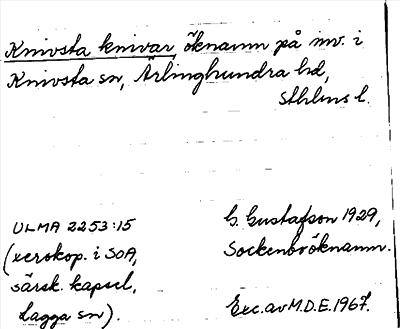 Knivsta knivar, öknamn på inv. i
Knivsta sn, Ärlinghundra hd,
Sthlms l.
ULMA 2253:15
(xerokop. i SOA,
särsk. kapsel,
Lagga sn).
G. Gustafson 1929,
Sockenbröknamn.
Exc. av M.D.E. 1967.